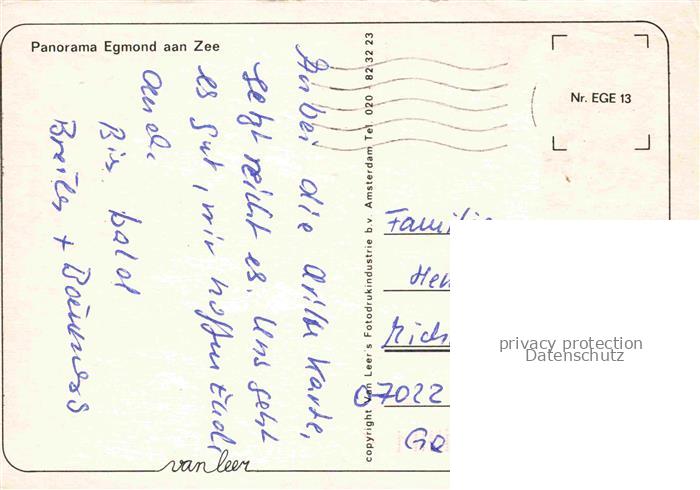 Panorama Egmond aan Zee
Nr. EGE 13
Anbei die dritte Karte,
jetzt reicht es. Uns geht
es gut, wir hoffen Euch
auch.
Bis bald
copyright Van Leer's Fotodrukindustrie b.v. Amsterdam Tel. 020 - 82 32 23
Familie
Hen
07022
Gö
van leer
privacy protection
Datenschutz